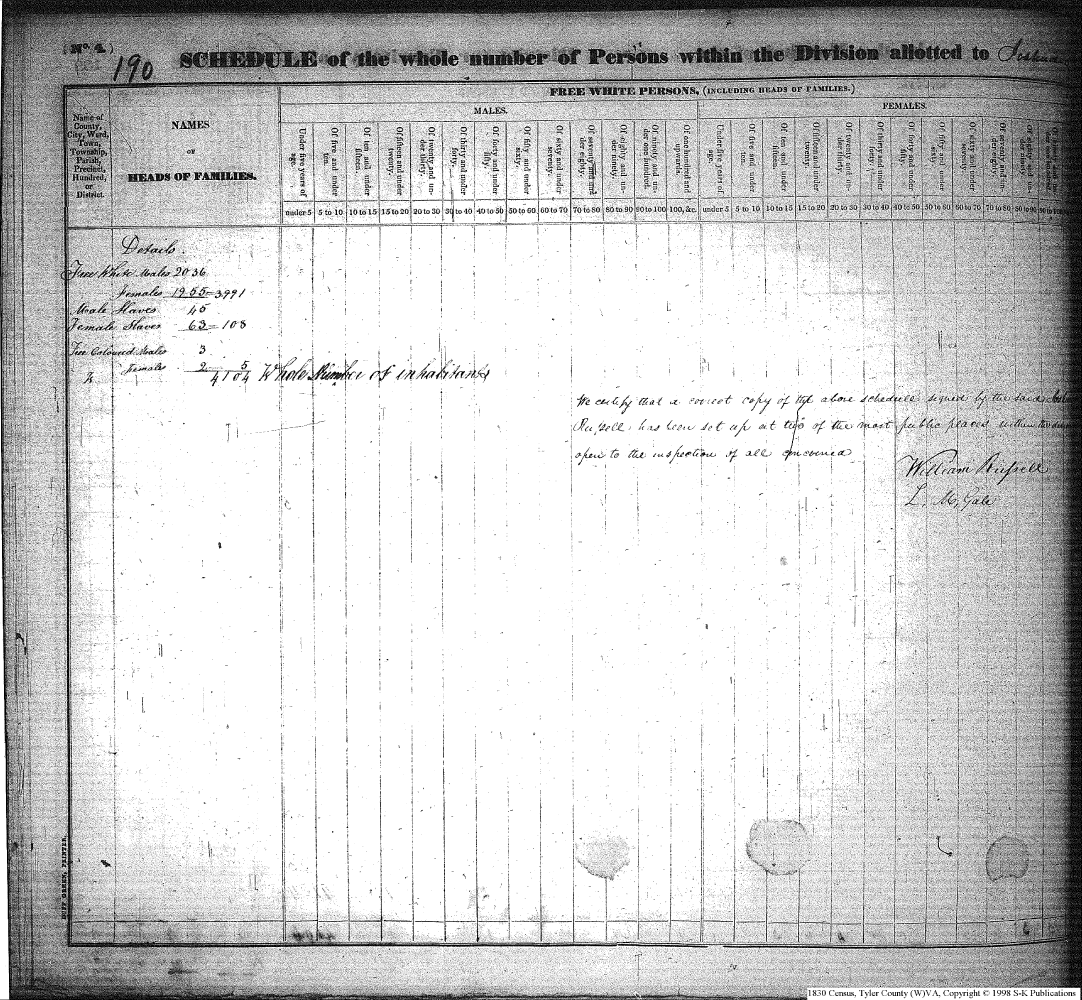 (No. 4.)
190
SCHEDULE of the whole number of Persons within the Division allotted to Joshua
Name of County, City, Ward, Town, Township, Parish, Precinct, Hundred, or District.
NAMES
OF
HEADS OF FAMILIES.
FREE WHITE PERSONS, (INCLUDING HEADS OF FAMILIES.)
MALES.
FEMALES.
Under five years of age.
Of five and under ten.
Of ten and under fifteen.
Of fifteen and under twenty.
Of twenty and under thirty.
Of thirty and under forty.
Of forty and under fifty.
Of fifty and under sixty.
Of sixty and under seventy.
Of seventy and under eighty.
Of eighty and under ninety.
Of ninety and under one hundred.
Of one hundred and upwards.
Under five years of age.
Of five and under ten.
Of ten and under fifteen.
Of fifteen and under twenty.
Of twenty and under thirty.
Of thirty and under forty.
Of forty and under fifty.
Of fifty and under sixty.
Of sixty and under seventy.
Of seventy and under eighty.
Of eighty and under ninety.
under 5 5 to 10 10 to 15 15 to 20 20 to 30 30 to 40 40 to 50 50 to 60 60 to 70 70 to 80 80 to 90 90 to 100 100, &c. under 5 5 to 10 10 to 15 15 to 20 20 to 30 30 to 40 40 to 50 50 to 60 60 to 70 70 to 80 80 to 90 90 to 100
Details
Free White Males 2036
Females 1955=3991
Male Slaves 45
Female Slaves 63=108
Free Coloured Males 3
Females 2 5
4104 Whole Number of inhabitants
We certify that a correct copy of the above schedule signed by the said
Russell has been set up at two of the most public places within the
open to the inspection of all concerned
William Russell
L. M. Gale
DUFF GREEN, PRINTER.
1830 Census, Tyler County (W)VA, Copyright © 1998 S-K Publications